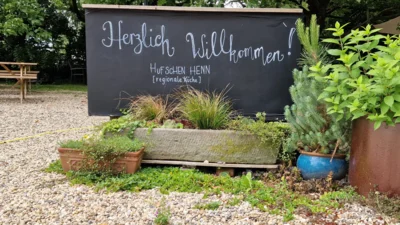 Herzlich Willkommen!
HUFSCHEN HENN
[regionale Küche]